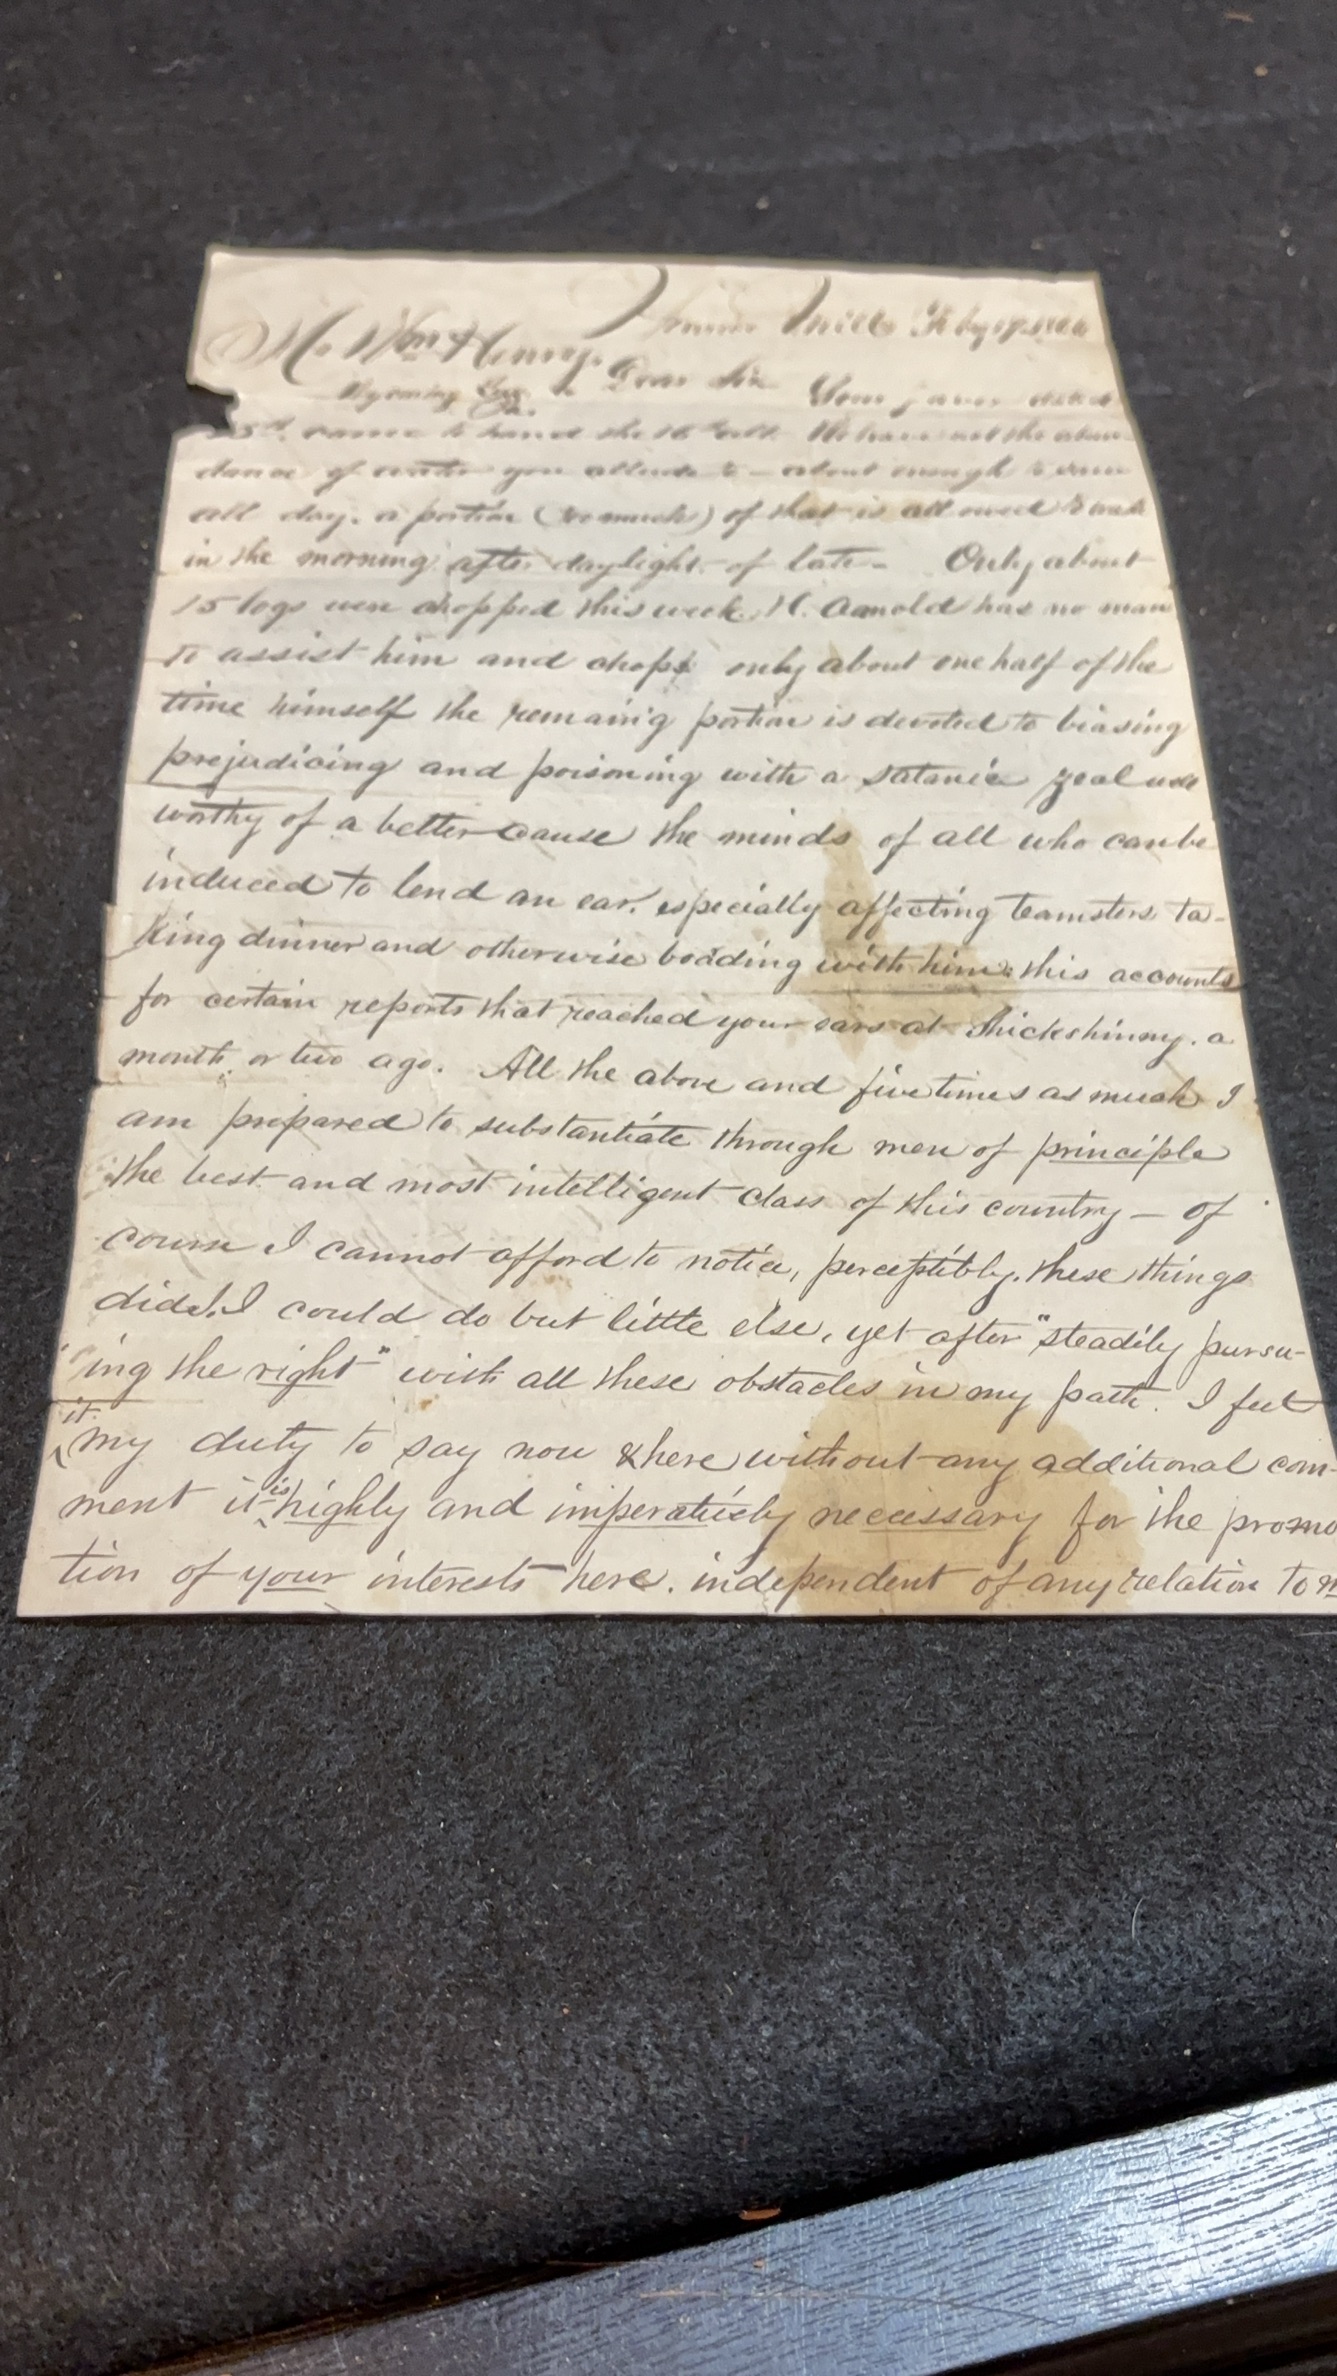 Mills
Mr Wm Henry.
Wyoming Dear Sir Your favor dated
came to hand the 16th ult. We have not the abun-
dance of water you allude to – about enough to
all day. a portion (too much) of that is allowed to
in the morning after daylight of late – Only about
15 logs were chopped this week. H. Arnold has no man
to assist him and chops only about one half of the
time himself the remaing portion is devoted to biasing
prejudicing and poisoning with a satanic zeal
worthy of a better cause the minds of all who can be
induced to lend an ear. especially affecting teamsters ta-
king dinner and otherwise boading with him: this accounts
for certain reports that reached your ears at Shickshinny. a
month or two ago. All the above and five times as much I
am prepared to substantiate through men of principle
the best and most intelligent class of this country – of
course I cannot afford to notice, perceptibly, these things
did I could do but little else, yet after "steadily pursu-
"ing the right" with all these obstacles in my path. I feel
it
my duty to say now & here without any additional com-
is
ment it highly and imperatively necessary for the promo
tion of your interests here. independent of any relation to